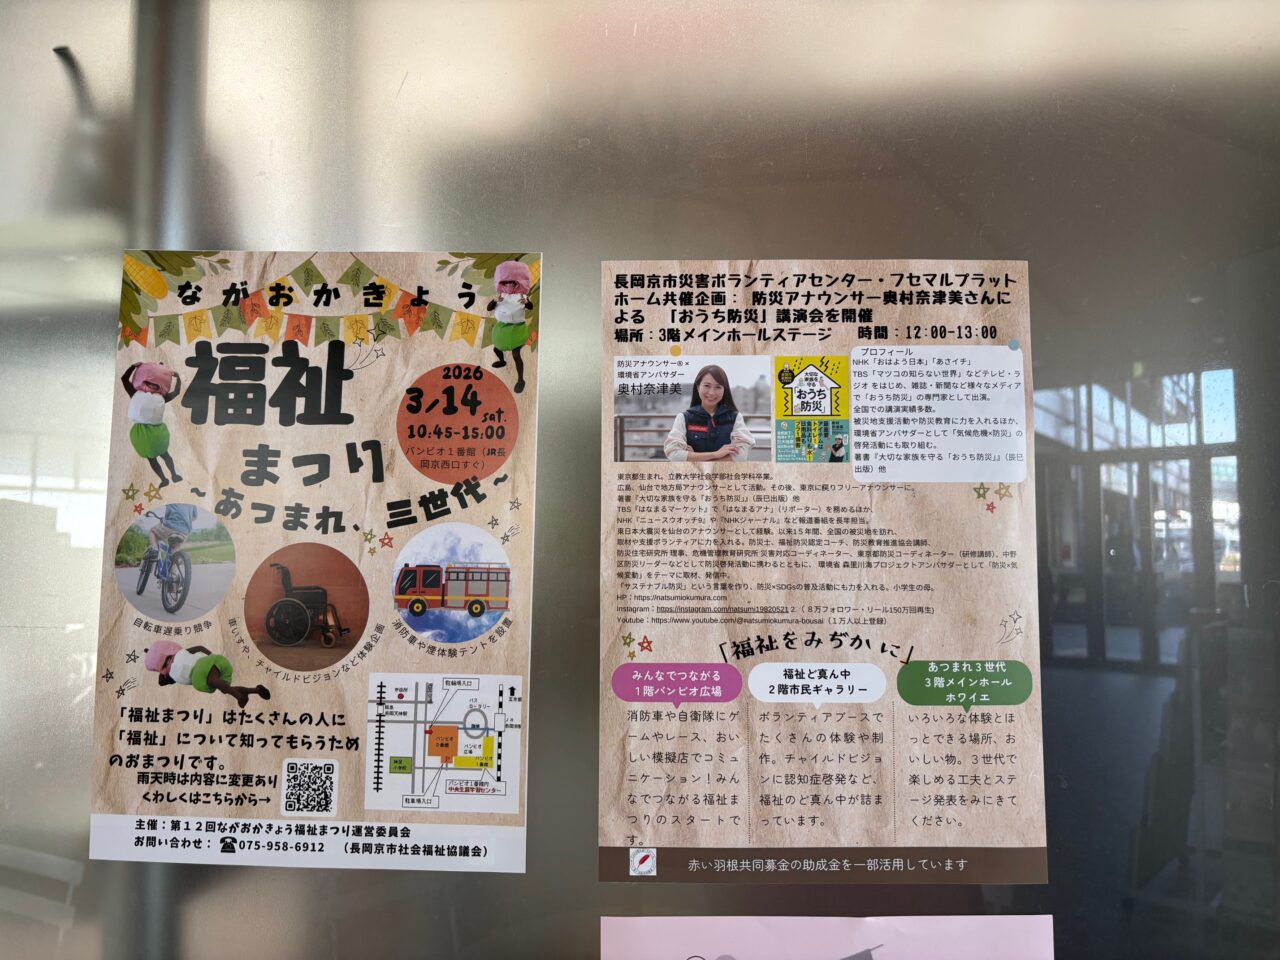 ながおかきょう
福祉
まつり
～あつまれ、三世代～
2026
3/14 sat.
10:45-15:00
バンビオ１番館（JR長
岡京西口すぐ）
自転車遅乗り競争
車いすや、チャイルドビジョンなど体験企画
消防車や煙体験テントを設置
「福祉まつり」はたくさんの人に
「福祉」について知ってもらうため
のおまつりです。
雨天時は内容に変更あり
くわしくはこちらから→
駐輪場入口
市役所
バス
ロータリー
バンビオ
２番館
バンビオ
広場
バンビオ
１番館
神足
小学校
バンビオ１番館内
中央生涯学習センター
駐車場入口
主催：第１２回ながおかきょう福祉まつり運営委員会
お問い合わせ：☎075-958-6912 （長岡京市社会福祉協議会）
長岡京市災害ボランティアセンター・フセマルプラット
ホーム共催企画： 防災アナウンサー奥村奈津美さんに
よる 「おうち防災」講演会を開催
場所：3階メインホールステージ 時間：12:00-13:00
防災アナウンサー® ×
環境省アンバサダー
奥村奈津美
大切な
家族を
守る
「おうち
防災」
プロフィール
NHK「おはよう日本」「あさイチ」
TBS「マツコの知らない世界」などテレビ・ラ
ジオ をはじめ、雑誌・新聞など様々なメディア
で「おうち防災」の専門家として出演。
全国での講演実績多数。
被災地支援活動や防災教育に力を入れるほか、
環境省アンバサダーとして「気候危機×防災」の
啓発活動にも取り組む。
著書『大切な家族を守る「おうち防災」』（辰巳
出版）他
東京都生まれ。立教大学社会学部社会学科卒業。
広島、仙台で地方局アナウンサーとして活動。その後、東京に戻りフリーアナウンサーに。
著書「大切な家族を守る「おうち防災」」（辰巳出版）他
TBS「はなまるマーケット」で「はなまるアナ」（リポーター）を務めるほか、
NHK『ニュースウオッチ9』や『NHKジャーナル』など報道番組を長年担当。
東日本大震災を仙台のアナウンサーとして経験。以来1５年間、全国の被災地を訪れ、
取材や支援ボランティアに力を入れる。防災士、福祉防災認定コーチ、防災教育推進協会講師、
防災住宅研究所 理事、危機管理教育研究所 災害対応コーディネーター、東京都防災コーディネーター（研修講師）、中野
区防災リーダーなどとして防災啓発活動に携わるとともに、環境省 森里川海プロジェクトアンバサダーとして「防災×気
候変動」をテーマに取材、発信中。
「サステナブル防災」という言葉を作り、防災×SDGsの普及活動にも力を入れる。小学生の母。
HP：https://natsumiokumura.com
Instagram：https://instagram.com/natsumi19820521 2.（８万フォロワー・リール150万回再生）
Youtube：https://www.youtube.com/@natsumiokumura-bousai（１万人以上登録）
「福祉をみぢかに」
みんなでつながる
１階バンビオ広場
消防車や自衛隊にゲ
ームやレース、おい
しい模擬店でコミュ
ニケーション！みん
なでつながる福祉ま
つりのスタートで
す。
福祉ど真ん中
２階市民ギャラリー
ボランティアブースで
たくさんの体験や制
作。チャイルドビジョ
ンに認知症啓発など、
福祉のど真ん中が詰ま
っています。
あつまれ３世代
３階メインホール
ホワイエ
いろいろな体験とほ
っとできる場所、お
いしい物。３世代で
楽しめる工夫とステ
ージ発表をみにきて
ください。
赤い羽根共同募金の助成金を一部活用しています